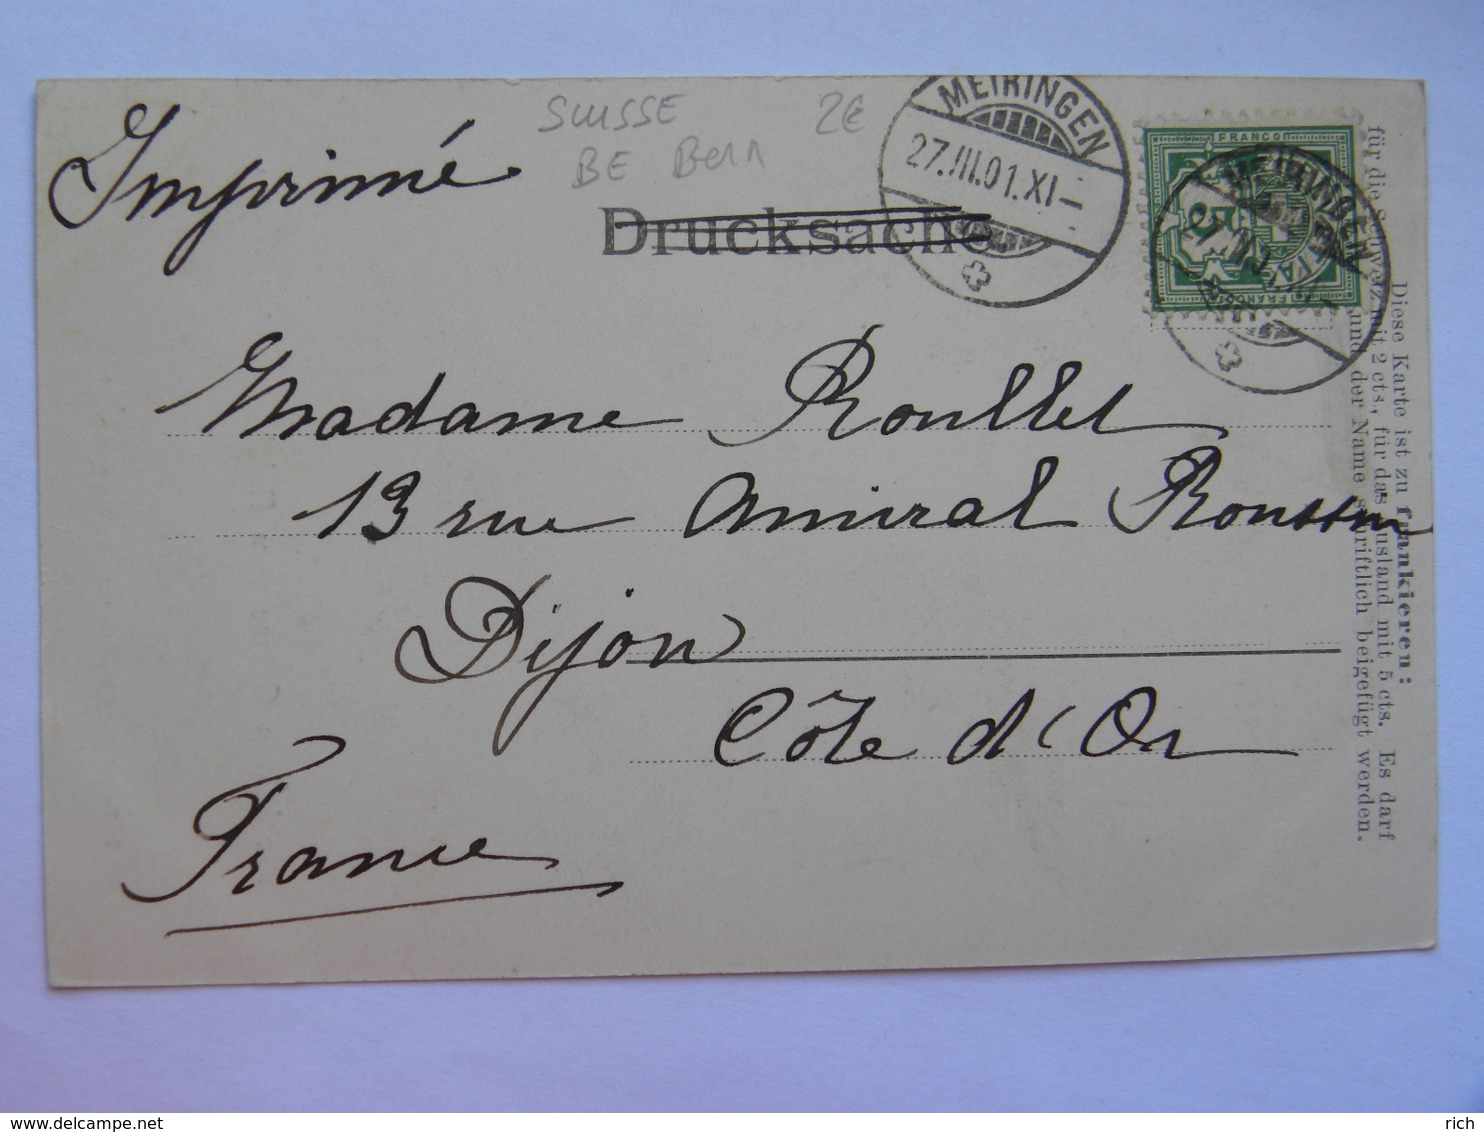 Imprimé
SUISSE 2€
BE Bern
Drucksache
MEIRINGEN
27.III.01.XI-
FRANCO
5
MEIRINGEN
Madame Roullet
13 rue Amiral Roussin
Dijon
Côte d'Or
France
Diese Karte ist zu frankieren:
für die Schweiz mit 2 cts., für das Ausland mit 5 cts. Es darf
und der Name schriftlich beigefügt werden.
www.delcampe.net
rich